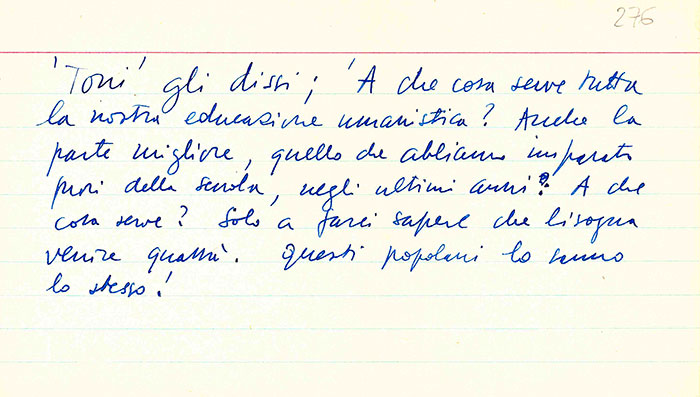 276
'Toni' gli dissi; 'A che cosa serve tutta
la nostra educazione umanistica? Anche la
parte migliore, quello che abbiamo imparato
fuori della scuola, negli ultimi anni? A che
cosa serve? Solo a farci sapere che bisogna
venire quassù. Questi popolani lo sanno
lo stesso!